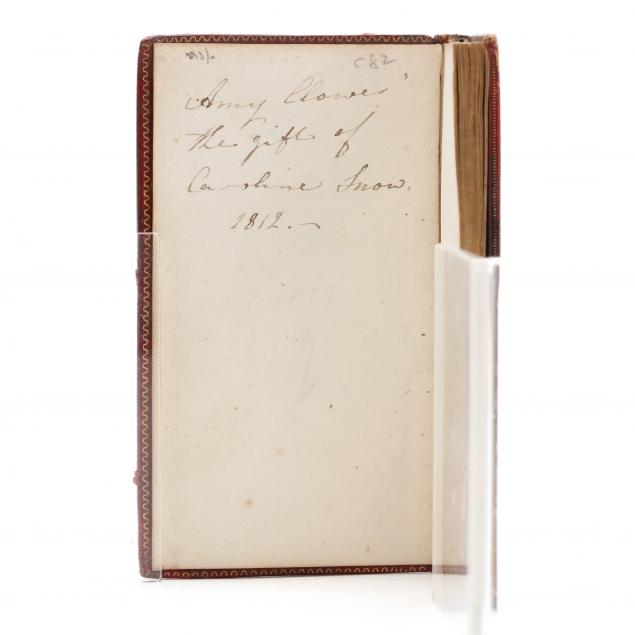 C82
Amy Clowes'
the gift of
Caroline Snow.
1812. —